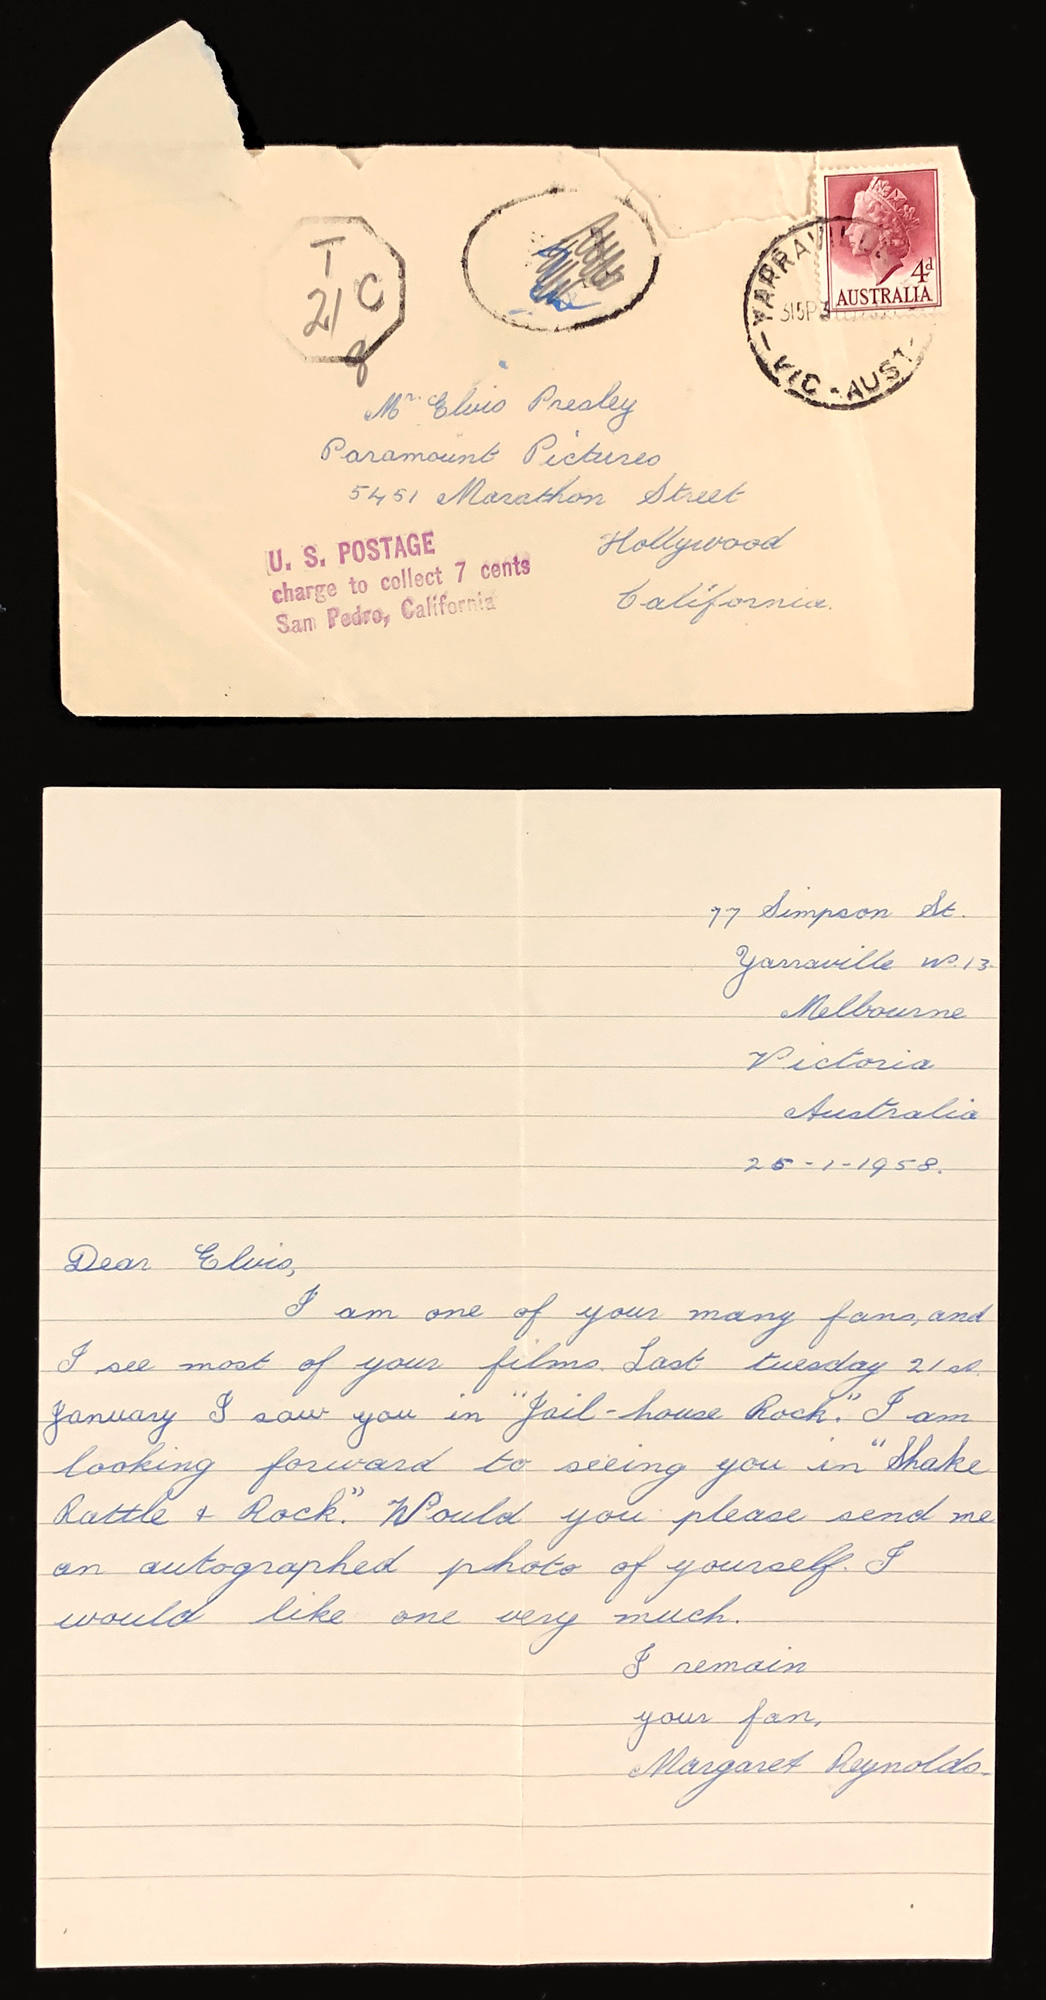 T
21 C
8
YARRAVILLE
315P3
VIC - AUST
4d
AUSTRALIA
Mr. Elvis Presley
Paramount Pictures
5451 Marathon Street
Hollywood
California.
U. S. POSTAGE
charge to collect 7 cents
San Pedro, California
77 Simpson St.
Yarraville W.13.
Melbourne
Victoria
Australia
25-1-1958.
Dear Elvis,
I am one of your many fans, and
I see most of your films. Last tuesday 21st.
January I saw you in "Jail-house Rock." I am
looking forward to seeing you in "Shake
Rattle + Rock." Would you please send me
an autographed photo of yourself. I
would like one very much.
I remain
your fan,
Margaret Reynolds.